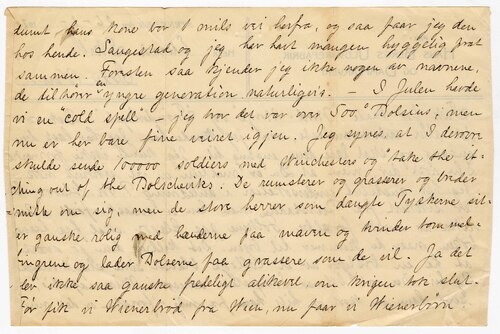 dumt, hans kone bor 1 mils vei herfra, og saa faar jeg den
hos hende. Langestad og jeg har havt mangen hyggelig prat
sammen. Foresten saa kjender jeg ikke nogen av navnene,
de tilhører en yngre generation naturligvis. – I Julen havde
vi en "cold spell" – jeg tror det var over 500° Celsius, men
nu er her bare fine veiret igjen. Jeg synes at I derovre
skulde sende 100000 soldiers med Winchesters og "take the it-
ching out of the Bolscheviks". De rumsterer og grasserer og breder
-- om sig, men de store herrer som dængte Tyskerne sit-
er ganske rolig med hænderne paa maven og tvinder tom mel-
fingrene og lader Bolserne faa grassere som de vil. Ja det
blev ikke saa ganske fredeligt alikevel, om krigen tok slut.
Før fik vi Wienerbrød fra Wien, nu faar vi Wienerbørn